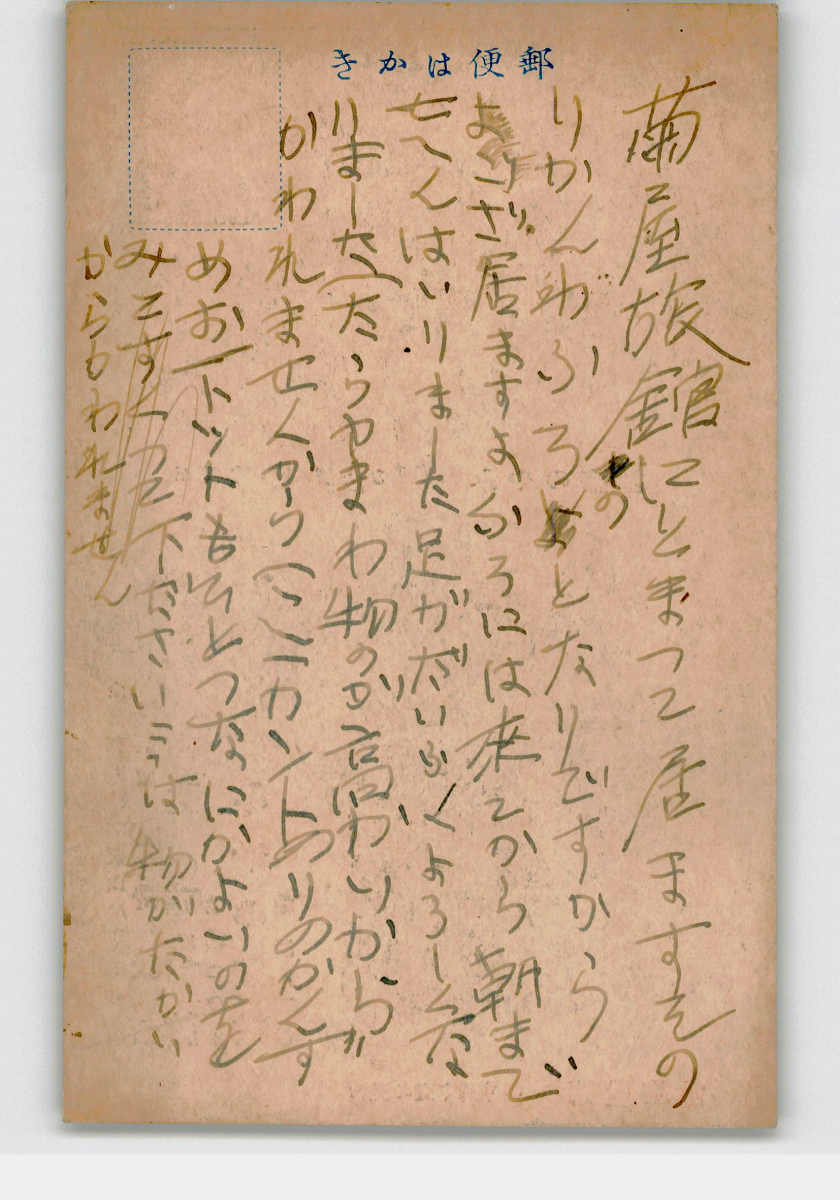 郵便はかき
菊屋旅館にとまつて居ますその
りかんわふろまとなりですから
きの
よござ居ますよふろには来てから朝まで
七へんはいりました足がだいぶよろしくな
りました(たらやまわ物のが高かいから
かわれませんから(ここカントめりのかんす
めおートット吾ひとつなにかよいのを
みてすくつて下ださいこゝは物がたかい
からかわれません